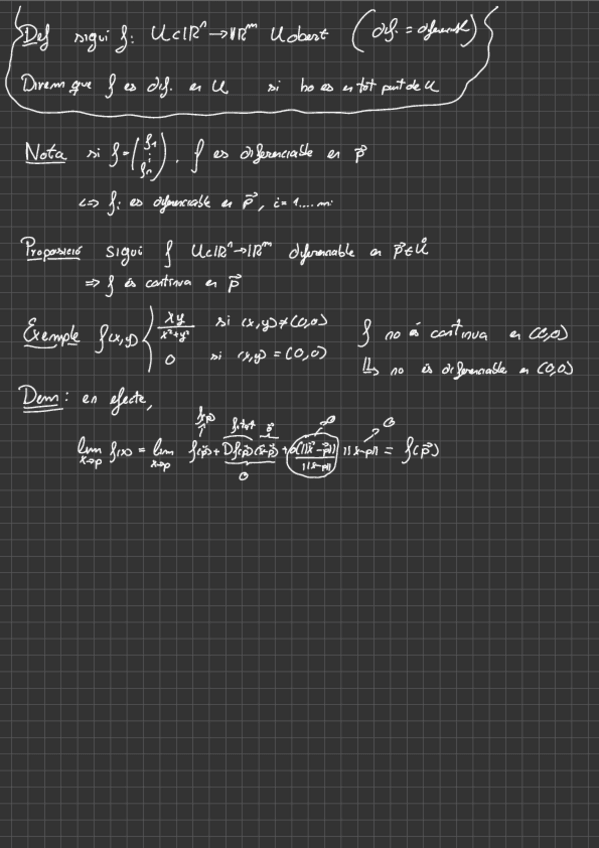 Def sigui f: U⊂ℝⁿ→ℝᵐ U obert (dif. = diferenciable)
Direm que f es dif. en U si ho es en tot punt de U
Nota si f = (f₁ ⋮ fₙ). f es diferenciable en p⃗
<=> fᵢ es diferenciable en p⃗, i = 1....m.
Proposició sigui f U⊂ℝⁿ→ℝᵐ diferenciable en p⃗ ∈ Ů
=> f és contínua en p⃗
Exemple f(x,y) { xy/(x²+y²) si (x,y)≠(0,0)
0 si (x,y) = (0,0)
f no és contínua en (0,0)
↳ no és diferenciable en (0,0)
Dem: en efecte,
lim x→p f(x) = lim x→p f(p⃗) + Df(p⃗)(x⃗-p⃗) + o(||x⃗-p⃗||)/||x-p|| ||x-p|| = f(p⃗)
0
0